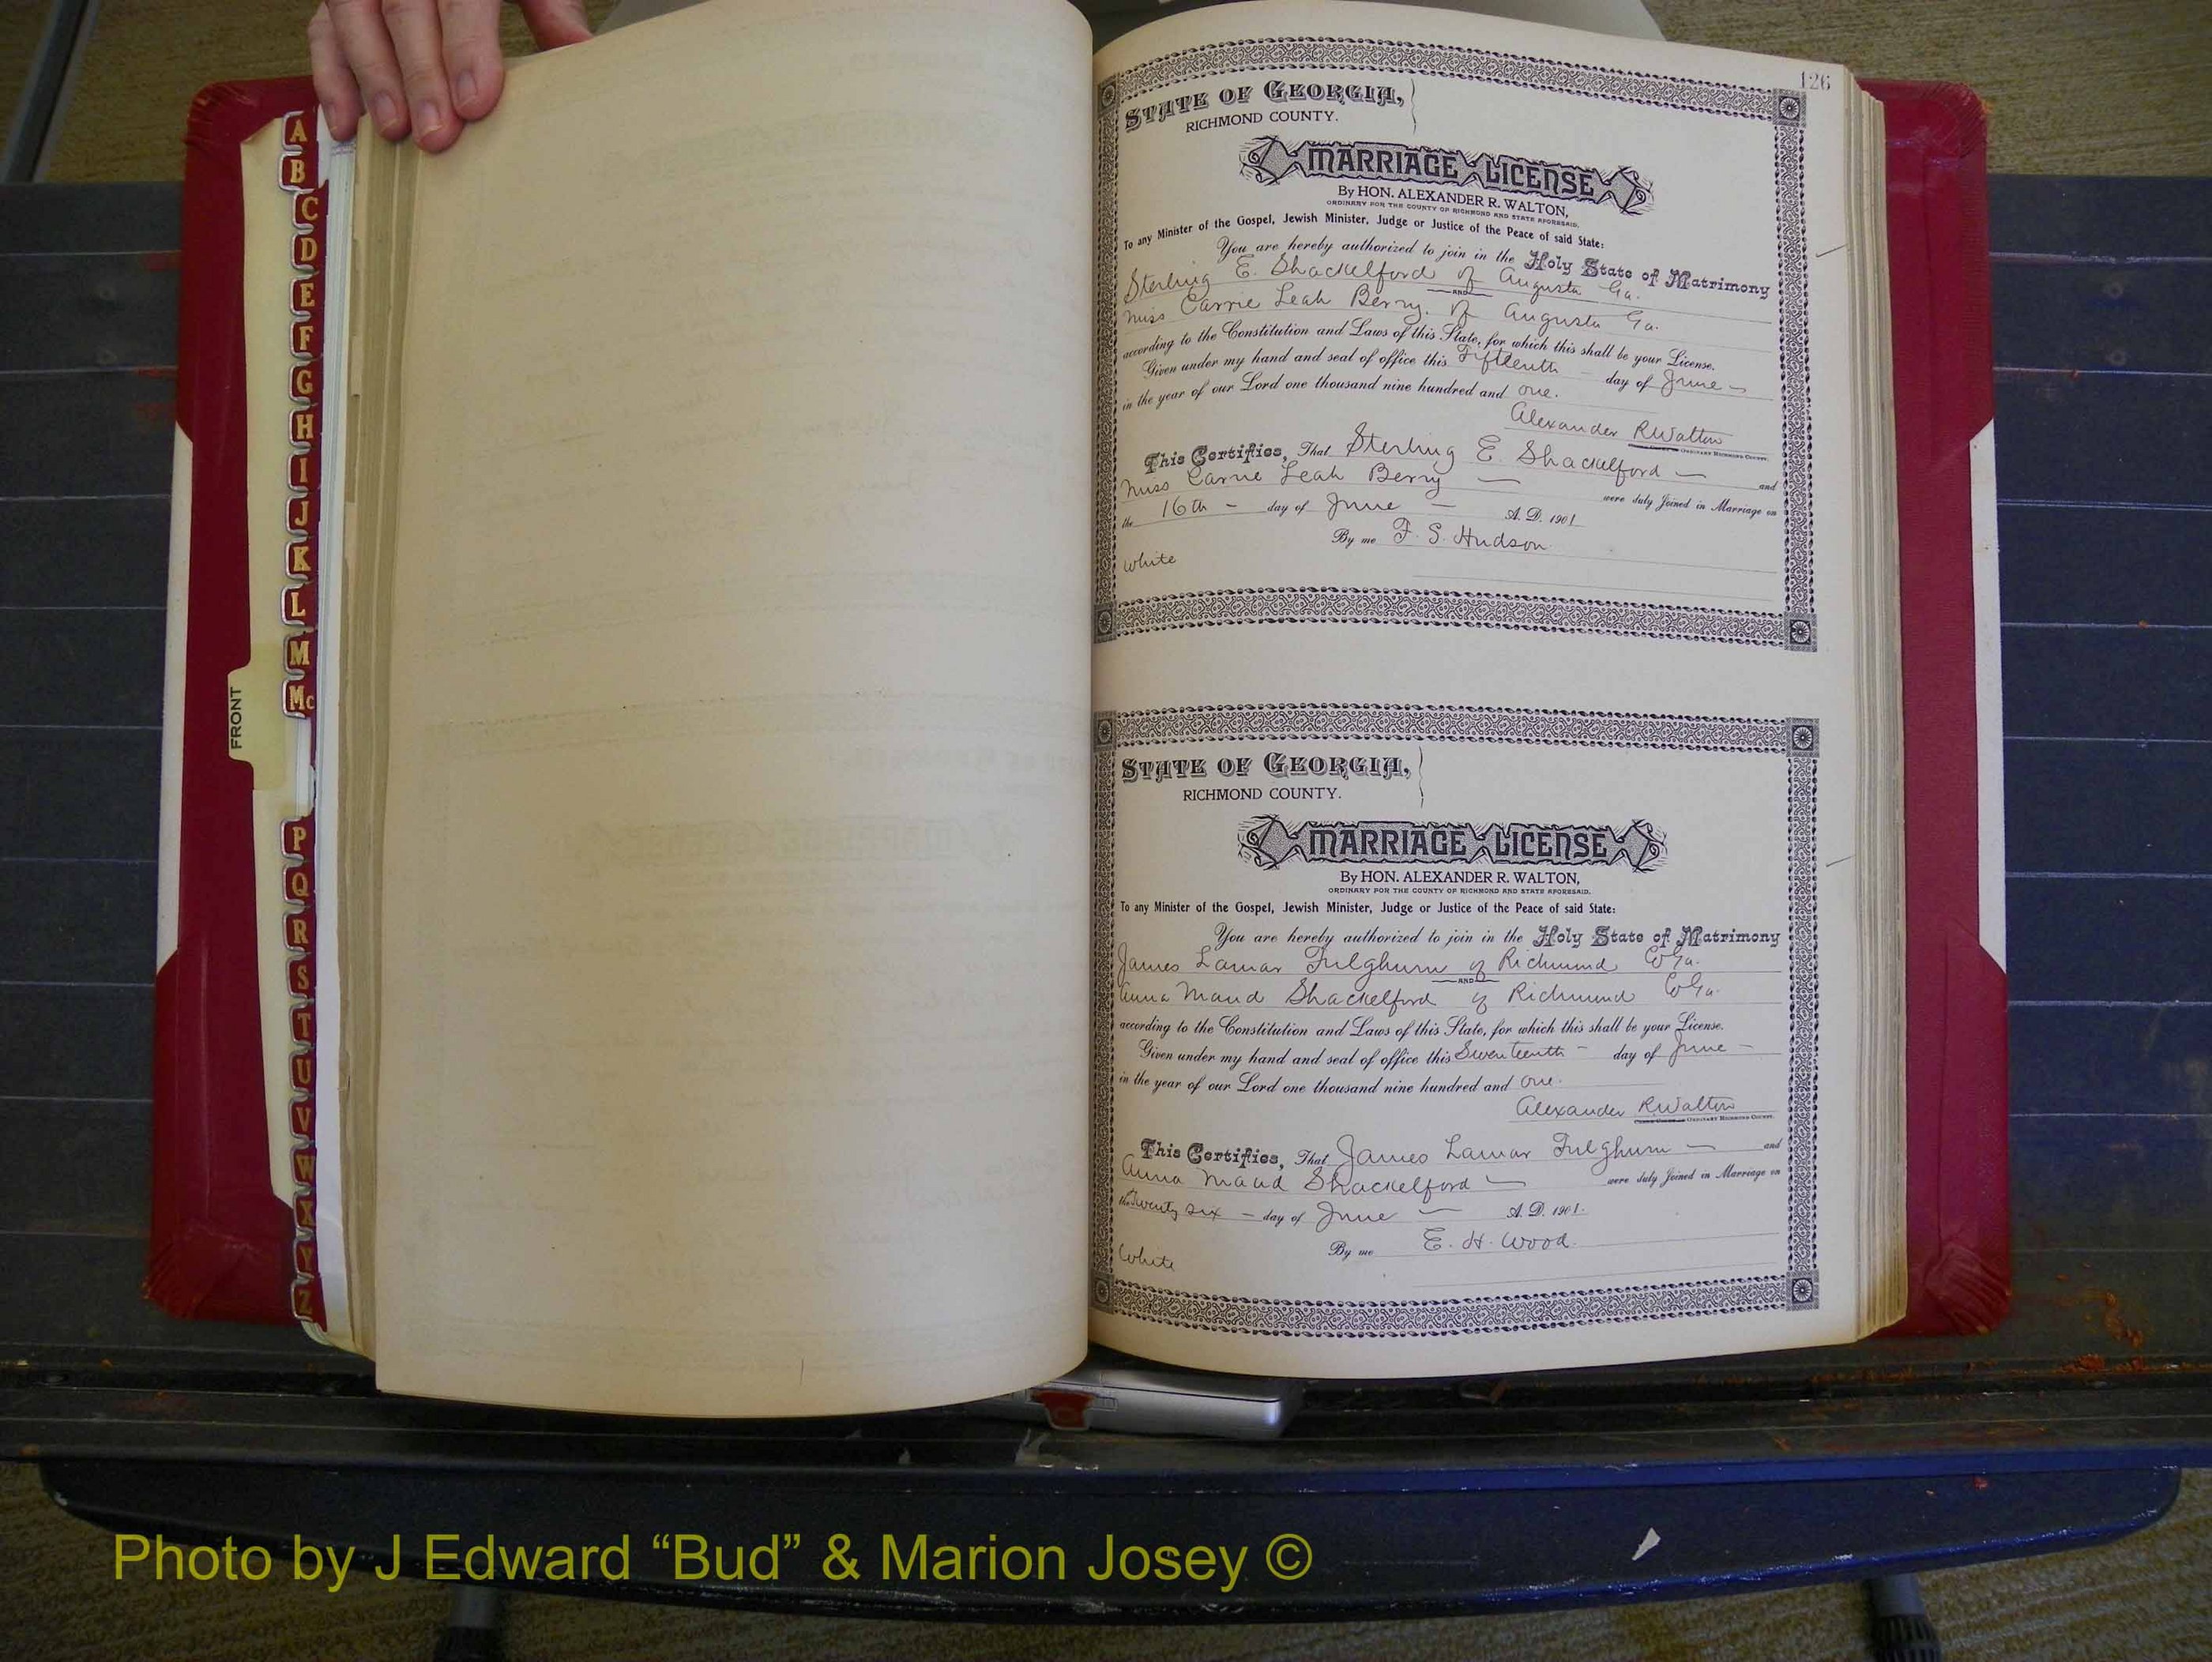 A
B
C
D
E
F
G
H
I
J
K
L
M
Mc
FRONT
P
Q
R
S
T
U
V
W
X
Y
Z
126
STATE OF GEORGIA,
RICHMOND COUNTY.
MARRIAGE LICENSE
By HON. ALEXANDER R. WALTON,
ORDINARY FOR THE COUNTY OF RICHMOND AND STATE AFORESAID.
To any Minister of the Gospel, Jewish Minister, Judge or Justice of the Peace of said State:
You are hereby authorized to join in the Holy State of Matrimony
Sterling E. Shackelford of Augusta Ga.
AND
Miss Carrie Leah Berry. of Augusta Ga.
according to the Constitution and Laws of this State, for which this shall be your License.
Given under my hand and seal of office this Fifteenth day of June
in the year of our Lord one thousand nine hundred and one.
Alexander R Walton
ORDINARY RICHMOND COUNTY.
This Certifies, That Sterling E. Shackelford and
Miss Carrie Leah Berry were duly Joined in Marriage on
the 16th day of June A. D. 1901
By me F. S. Hudson.
White
STATE OF GEORGIA,
RICHMOND COUNTY.
MARRIAGE LICENSE
By HON. ALEXANDER R. WALTON,
ORDINARY FOR THE COUNTY OF RICHMOND AND STATE AFORESAID.
To any Minister of the Gospel, Jewish Minister, Judge or Justice of the Peace of said State:
You are hereby authorized to join in the Holy State of Matrimony
James Lamar Fulghum of Richmond Co Ga.
AND
Anna Maud Shackelford of Richmond Co Ga.
according to the Constitution and Laws of this State, for which this shall be your License.
Given under my hand and seal of office this Seventeenth day of June
in the year of our Lord one thousand nine hundred and one.
Alexander R Walton
ORDINARY RICHMOND COUNTY.
This Certifies, That James Lamar Fulghum and
Anna Maud Shackelford were duly Joined in Marriage on
the Twenty six day of June A. D. 1901.
By me E. H. Wood.
White
Photo by J Edward “Bud” & Marion Josey ©